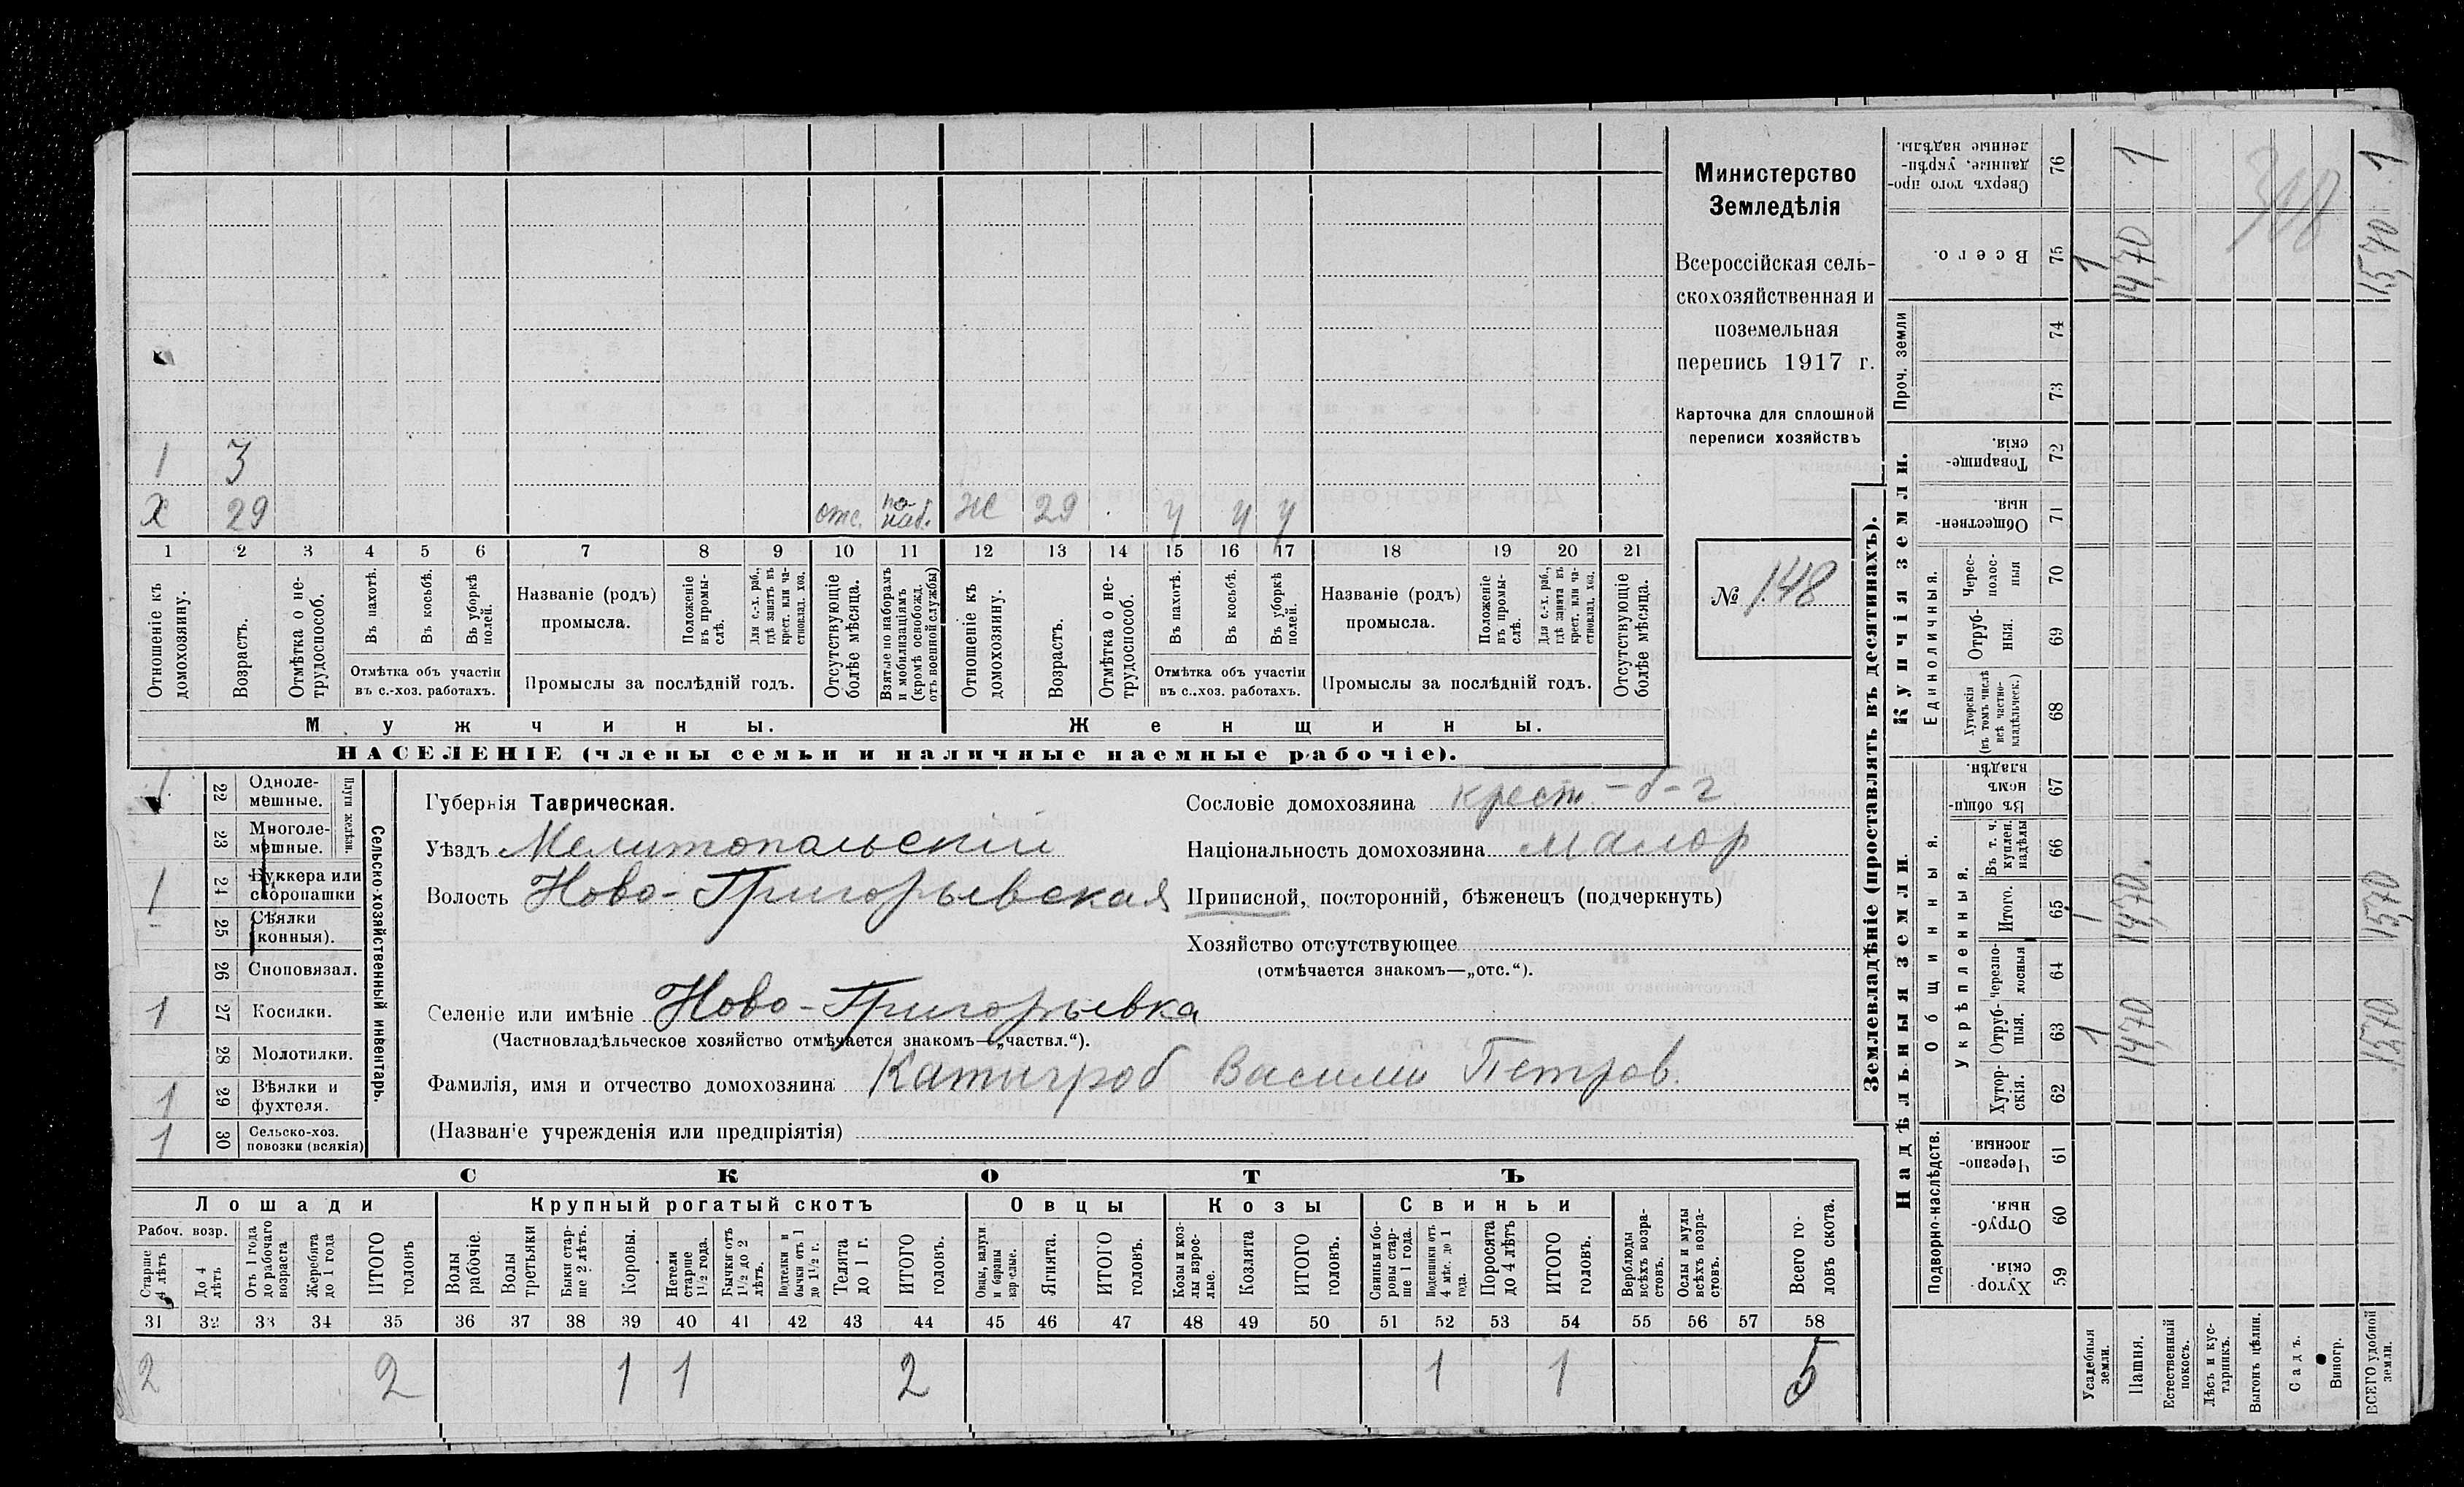 1 3
Х 29 отс. по наб. Ж 29 у у у
1 2 3 4 5 6 7 8 9 10 11 12 13 14 15 16 17 18 19 20 21
Отношеніе къ домохозяину.
Возрастъ.
Отмѣтка о нетрудоспособ.
Въ пахотѣ.
Въ косьбѣ.
Въ уборкѣ полей.
Отмѣтка объ участіи въ с.-хоз. работахъ.
Названіе (родъ) промысла.
Положеніе въ промыслѣ.
Для с.-х. раб., гдѣ занятъ въ крест. или частновлад. хоз.
Промыслы за послѣдній годъ.
Отсутствующіе болѣе мѣсяца.
Взятые по наборамъ и мобилизаціямъ (кромѣ освобожд. отъ военной службы)
Отношеніе къ домохозяину.
Возрастъ.
Отмѣтка о нетрудоспособ.
Въ пахотѣ.
Въ косьбѣ.
Въ уборкѣ полей.
Отмѣтка объ участіи въ с.-хоз. работахъ.
Названіе (родъ) промысла.
Положеніе въ промыслѣ.
Для с.-х. раб., гдѣ занята въ крест. или частновлад. хоз.
Промыслы за послѣдній годъ.
Отсутствующіе болѣе мѣсяца.
Мужчины. Женщины.
НАСЕЛЕНІЕ (члены семьи и наличные наемные рабочіе).
Министерство
Земледѣлія
Всероссійская сель-
скохозяйственная и
поземельная
перепись 1917 г.
Карточка для сплошной
переписи хозяйствъ
№ 148
Сельско-хозяйственный инвентарь.
Плуги желѣзн.
22 Одноле-мешные.
23 Многоле-мешные.
1 24 Буккера или сторопашки
25 Сѣялки (конныя).
26 Сноповязал.
1 27 Косилки.
28 Молотилки.
1 29 Вѣялки и фухтеля.
1 30 Сельско-хоз. повозки (всякія)
Губернія Таврическая.
Уѣздъ Мелитопольскій
Волость Ново-Григорьевская
Селеніе или имѣніе Ново-Григорьевка
(Частновладѣльческое хозяйство отмѣчается знакомъ—„частвл.“).
Фамилія, имя и отчество домохозяина Катигроб Василий Петров.
(Названіе учрежденія или предпріятія)
Сословіе домохозяина крест.
Національность домохозяина малор
Приписной, посторонній, бѣженецъ (подчеркнуть)
Хозяйство отсутствующее
(отмѣчается знакомъ—„отс.“).
СКОТЪ
Лошади Крупный рогатый скотъ Овцы Козы Свиньи
Рабоч. возр.
Старше 4 лѣтъ
До 4 лѣтъ
Отъ 1 года до рабочаго возраста
Жеребята до 1 года
ИТОГО головъ
Волы рабочіе.
Волы третьяки
Быки старше 2 лѣтъ.
Коровы.
Нетели старше 1½ года.
Бычки отъ 1½ до 2 лѣтъ.
Подтелки и бычки отъ 1 до 1½ г.
Телята до 1 г.
ИТОГО головъ.
Овцы, валухи и бараны взрослые.
Ягнята.
ИТОГО головъ.
Козы и козлы взрослые.
Козлята
ИТОГО головъ.
Свиньи и боровы старше 1 года.
Подсвинки отъ 4 мѣс. до 1 года.
Поросята до 4 лѣтъ
ИТОГО головъ.
Верблюды всѣхъ возрастовъ.
Ослы и мулы всѣхъ возрастовъ.
Всего головъ скота.
31 32 33 34 35 36 37 38 39 40 41 42 43 44 45 46 47 48 49 50 51 52 53 54 55 56 57 58
2 2 1 1 2 1 1 5
Землевладѣніе (проставлять въ десятинахъ).
Купчія земли.
Надѣльныя земли.
Сверхъ того проданные, укрѣпленные надѣлы. 76
Всего. 75
Проч. земли 74 73
Товарищескія. 72
Общественныя. 71
Единоличныя.
Чересполосныя 70
Отрубныя. 69
Хуторскія (въ томъ числѣ всѣ частновладѣльческ.) 68
Общинныя.
Въ общинномъ владѣн. 67
Укрѣпленныя.
Въ т. ч. куплен. надѣлы 66
Итого. 65
Черезполосныя 64
Отрубныя. 63
Хуторскія. 62
Подворно-наслѣдств.
Черезполосныя. 61
Отрубныя. 60
Хуторскія. 59
Усадебныя земли. 1 1 1
Пашня. 14,70 14,70 14,70 1
Естественный покосъ.
Лѣсъ и кустарникъ.
Выгонъ цѣлин.
Садъ.
Виногр.
ВСЕГО удобной земли. 15,70 15,70 15,70 1